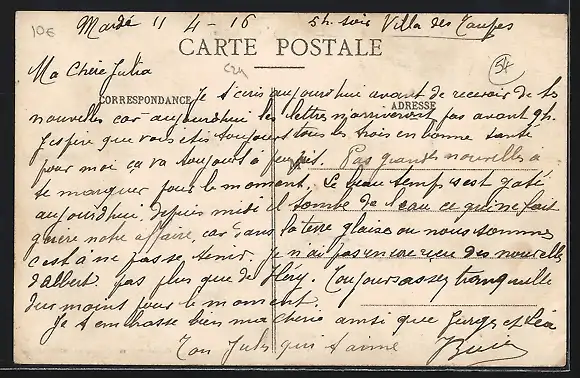 10€
Mardi 11 4 - 16 5h. soir Villa des Taupes
CARTE POSTALE
54
Ma Chère Julia
CORRESPONDANCE
ADRESSE
Je t'ecris aujourd'hui avant de recevoir de tes
nouvelles car aujourd'hui les lettres n'arriveront pas avant 9h.
J'espire que vous etes toujours tous les trois en bonne santé
pour moi ça va toujours à peu près. Pas grandes nouvelles à
te marquer pour le moment. Le beau temps s'est gaté
aujourd'hui. depuis midi il tombe de l'eau ce qui ne fait
guère notre affaire, car dans la terre glaise ou nous sommes
c'est à ne pas se tenir. Je n'ai pas encore reçu des nouvelles
d'Albert. pas plus que de Fleury. Toujours assez tranquille
du moins pour le moment.
Je t'embrasse bien ma cherie ainsi que et Léa
Ton Jules qui t'aime